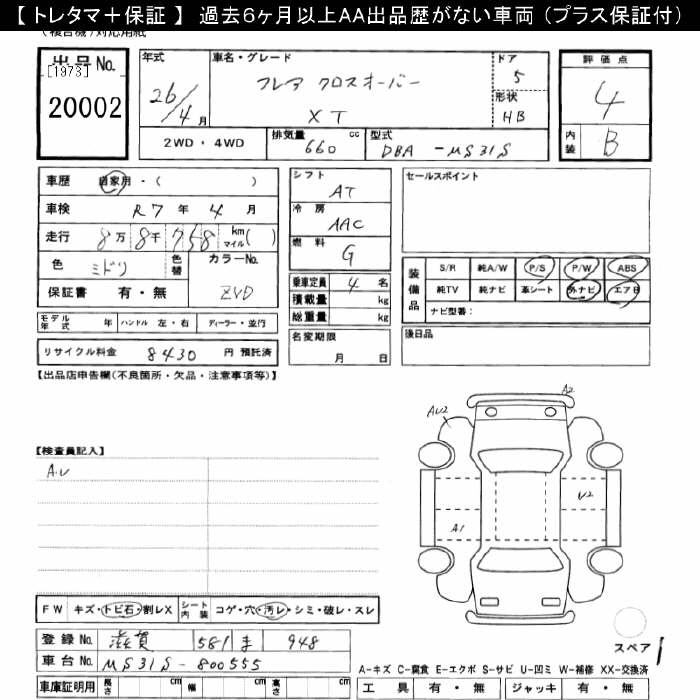 【 トレタマ＋保証 】 過去6ヶ月以上AA出品歴がない車両 (プラス保証付)
出品No.
[1973]
20002
年式
26/4月
車名・グレード
フレア クロスオーバー
XT
ドア
5
形状
HB
評価点
4
内装
B
2WD・4WD
排気量
660
cc
型式
DBA - MS31S
車歴
自家用・( )
車検
R7年4月
走行
8万8千758
km
マイル( )
色
ミドリ
色替
カラーNo.
ZVD
保証書 有・無
シフト
AT
冷房
AAC
燃料
G
乗車定員 4名
積載量 kg
総重量 kg
名変期限
月 日
セールスポイント
装備品
S/R 純A/W P/S P/W ABS
純TV 純ナビ 革シート 外ナビ エアB
ナビ型番:
後日品
モデル年式 年 ハンドル 左・右 ディーラー・並行
リサイクル料金 8430 円 預託済
【出品店申告欄(不良箇所・欠品・注意事項等)】
【検査員記入】
A.U
A2
AU2
U2
A1
FW キズ・トビ石・割レX
シート内装 コゲ・穴・汚レ・シミ・破レ・スレ
登録No. 滋賀 581 ま 948
車台No. MS31S-800555
車庫証明用 長さ cm 幅 cm 高さ cm
スペア
A-キズ C-腐食 E-エクボ S-サビ U-凹ミ W-補修 XX-交換済
工具 有・無 ジャッキ 有・無